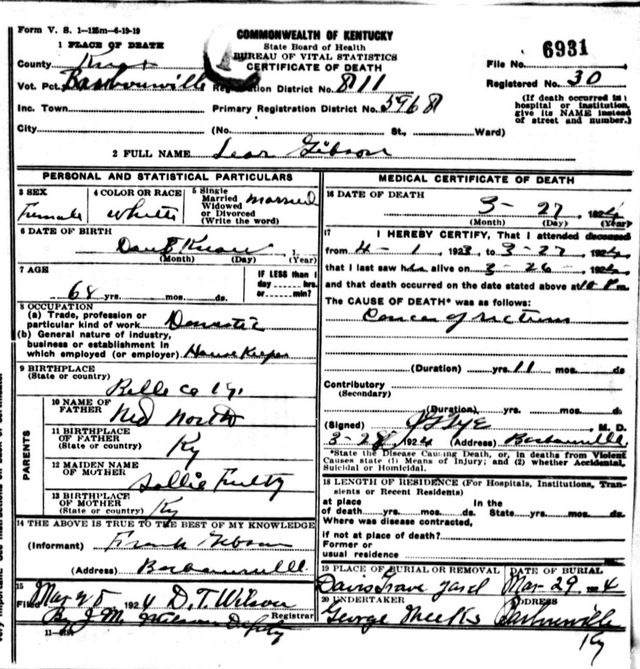 Form V. S. 1-125m-6-19-19
COMMONWEALTH OF KENTUCKY
State Board of Health
BUREAU OF VITAL STATISTICS
CERTIFICATE OF DEATH
1 PLACE OF DEATH
County Knox
File No. 6931
Vot. Pct. Barbourville Registration District No. 811
Registered No. 30
Inc. Town Primary Registration District No. 5968
(If death occurred in a hospital or institution, give its NAME instead of street and number.)
City (No. St., Ward)
2 FULL NAME Gibson
PERSONAL AND STATISTICAL PARTICULARS
3 SEX
Female
4 COLOR OR RACE
White
5 Single
Married
Widowed
or Divorced
(Write the word)
Married
6 DATE OF BIRTH
Dont Know
(Month) (Day) (Year)
7 AGE
68 yrs. mos. ds.
IF LESS than 1
day hrs.
or min?
8 OCCUPATION
(a) Trade, profession or
particular kind of work
(b) General nature of industry,
business or establishment in
which employed (or employer) House Keeper
9 BIRTHPLACE
(State or country)
Belle co Ky.
PARENTS
10 NAME OF
FATHER
Ned North
11 BIRTHPLACE
OF FATHER
(State or country)
Ky
12 MAIDEN NAME
OF MOTHER
Sallie
13 BIRTHPLACE
OF MOTHER
(State or country)
Ky
14 THE ABOVE IS TRUE TO THE BEST OF MY KNOWLEDGE
(Informant) Frank Gibson
(Address) Barbourville
15
Filed Mar 25 1924 D. T. Wilson
Registrar
By J. M. Wilson Deputy
MEDICAL CERTIFICATE OF DEATH
16 DATE OF DEATH
3-27, 1924
(Month) (Day) (Year)
17 I HEREBY CERTIFY, That I attended deceased
from 4-1, 1923, to 3-27, 1924
that I last saw her alive on 3-26, 1924
and that death occurred on the date stated above at 10 Pm
The CAUSE OF DEATH* was as follows:
Cancer of rectum
(Duration) yrs. 11 mos. ds.
Contributory
(Secondary)
(Duration) yrs. mos. ds.
(Signed) M. D.
3-28, 1924 (Address) Barbourville
*State the Disease Causing Death, or, in deaths from Violent
Causes state (1) Means of Injury; and (2) whether Accidental,
Suicidal or Homicidal.
18 LENGTH OF RESIDENCE (For Hospitals, Institutions, Tran-
sients or Recent Residents)
at place In the
of death yrs. mos. ds. State yrs. mos. ds.
Where was disease contracted,
if not at place of death?
Former or
usual residence
19 PLACE OF BURIAL OR REMOVAL
Davis Grave Yard
DATE OF BURIAL
Mar. 29 1924
20 UNDERTAKER
George Meeks
ADDRESS
Barbourville
Ky